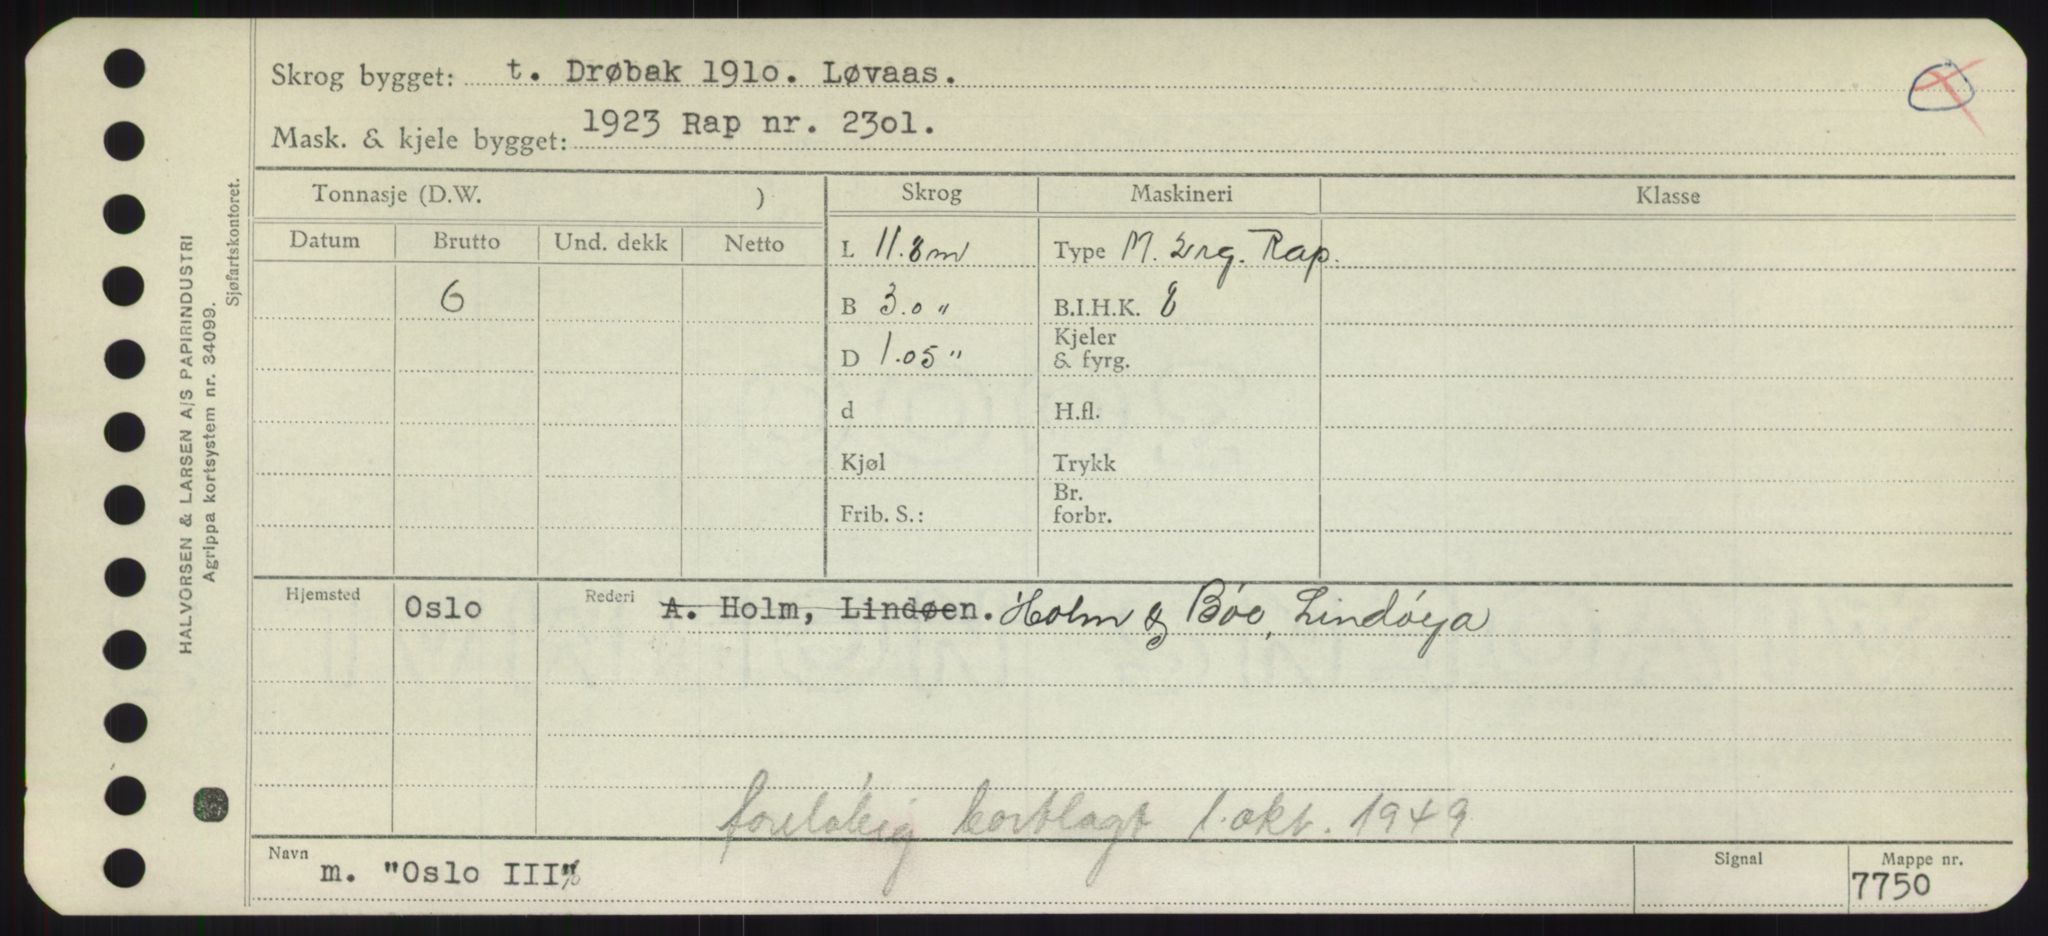 Skrog bygget: t. Drøbak 191o. Løvaas.
Mask. & kjele bygget: 1923 Rap nr. 23o1.
Tonnasje (D.W. ) Skrog Maskineri Klasse
Datum Brutto Und. dekk Netto
L 11.8 m Type M. Rap.
6 B 3.0 " B.I.H.K. 8
D 1.05 " Kjeler
& fyrg.
d H.fl.
Kjøl Trykk
Frib. S.: Br.
forbr.
Hjemsted Oslo Rederi A. Holm, Lindøen. Holm & Bøe, Lindøya
foreløbig bortlagt 1. okt. 1949
Navn m. "Oslo III" Signal Mappe nr.
7750
HALVORSEN & LARSEN A/S PAPIRINDUSTRI
Agrippa kortsystem nr. 34099.
Sjøfartskontoret.